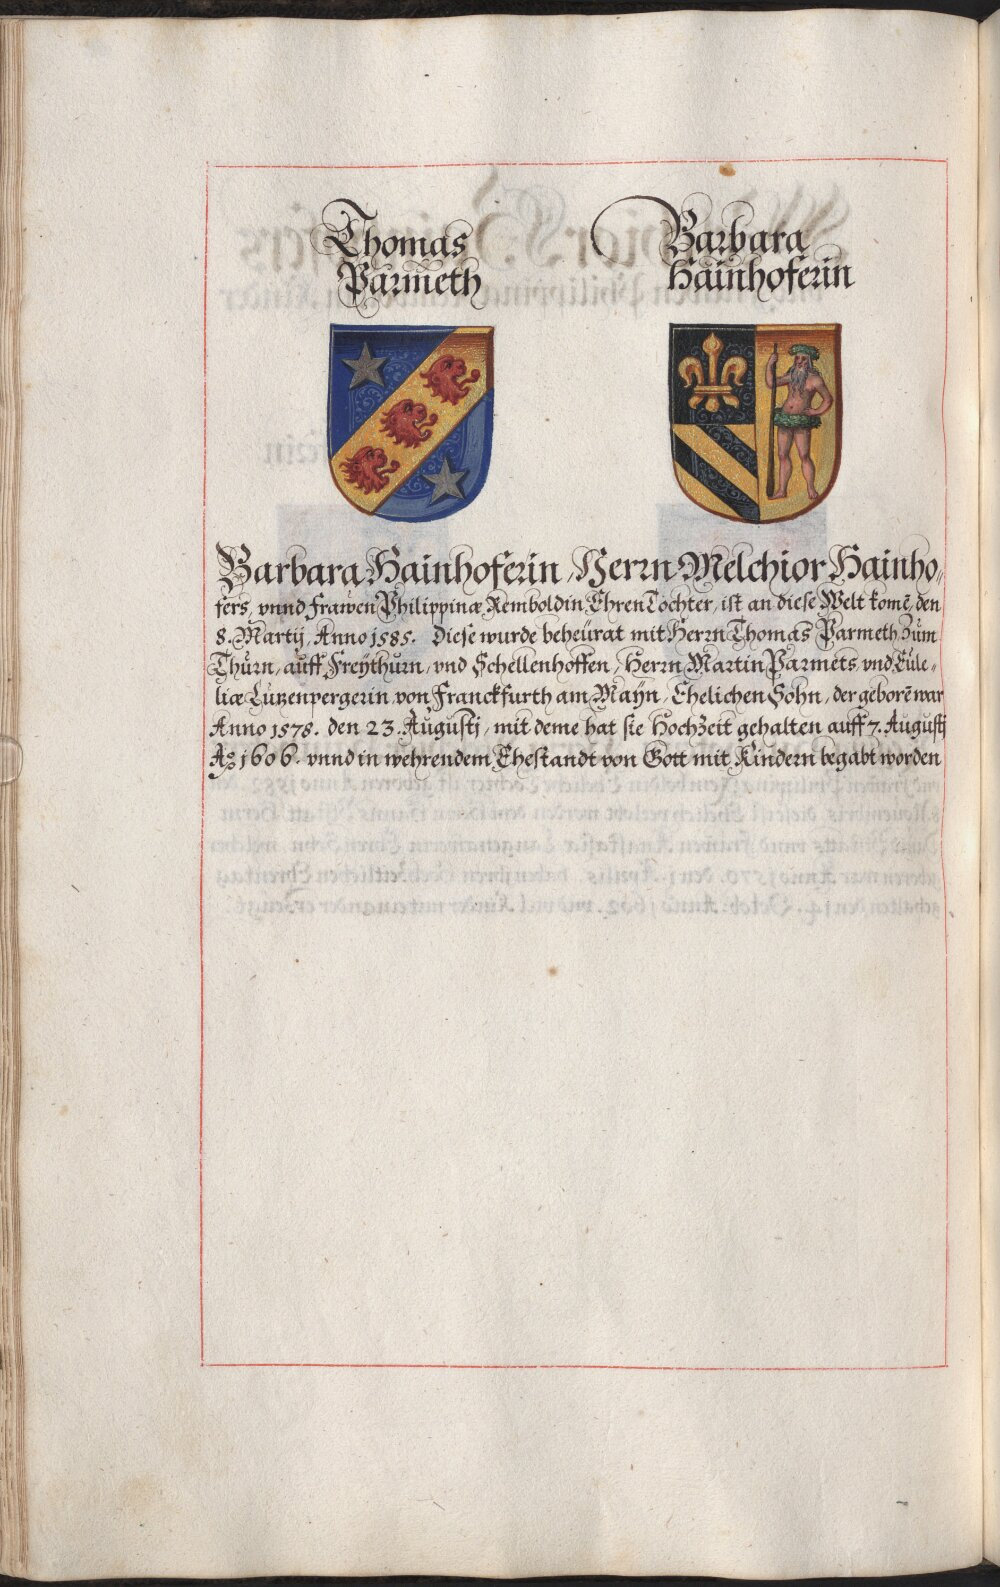 Thomas
Parmeth
Barbara
Hainhoferin
Barbara Hainhoferin, Herrn Melchior Hainho„
fers, vnnd frawen Philippinæ Remboldin Ehren Tochter, ist an diese Welt komē, den
8. Martij, Anno 1585. Diese wurde beheürat mit Herrn Thomas Parmeth Zum
Thurn, auff Freÿthurn, vnd Schellenhoffen, Herrn Martin Parmets, vnd Eule„
liæ Lutzenpergerin von Franckfurth am Maÿn, Ehelichen Sohn, der geborē war
Anno 1578. den 23. Augustj, mit deme hat sie HochZeit gehalten auff 7. Augustj
Aō 1606. vnnd in wehrendem Ehestandt von Gott mit Kindern begabt worden